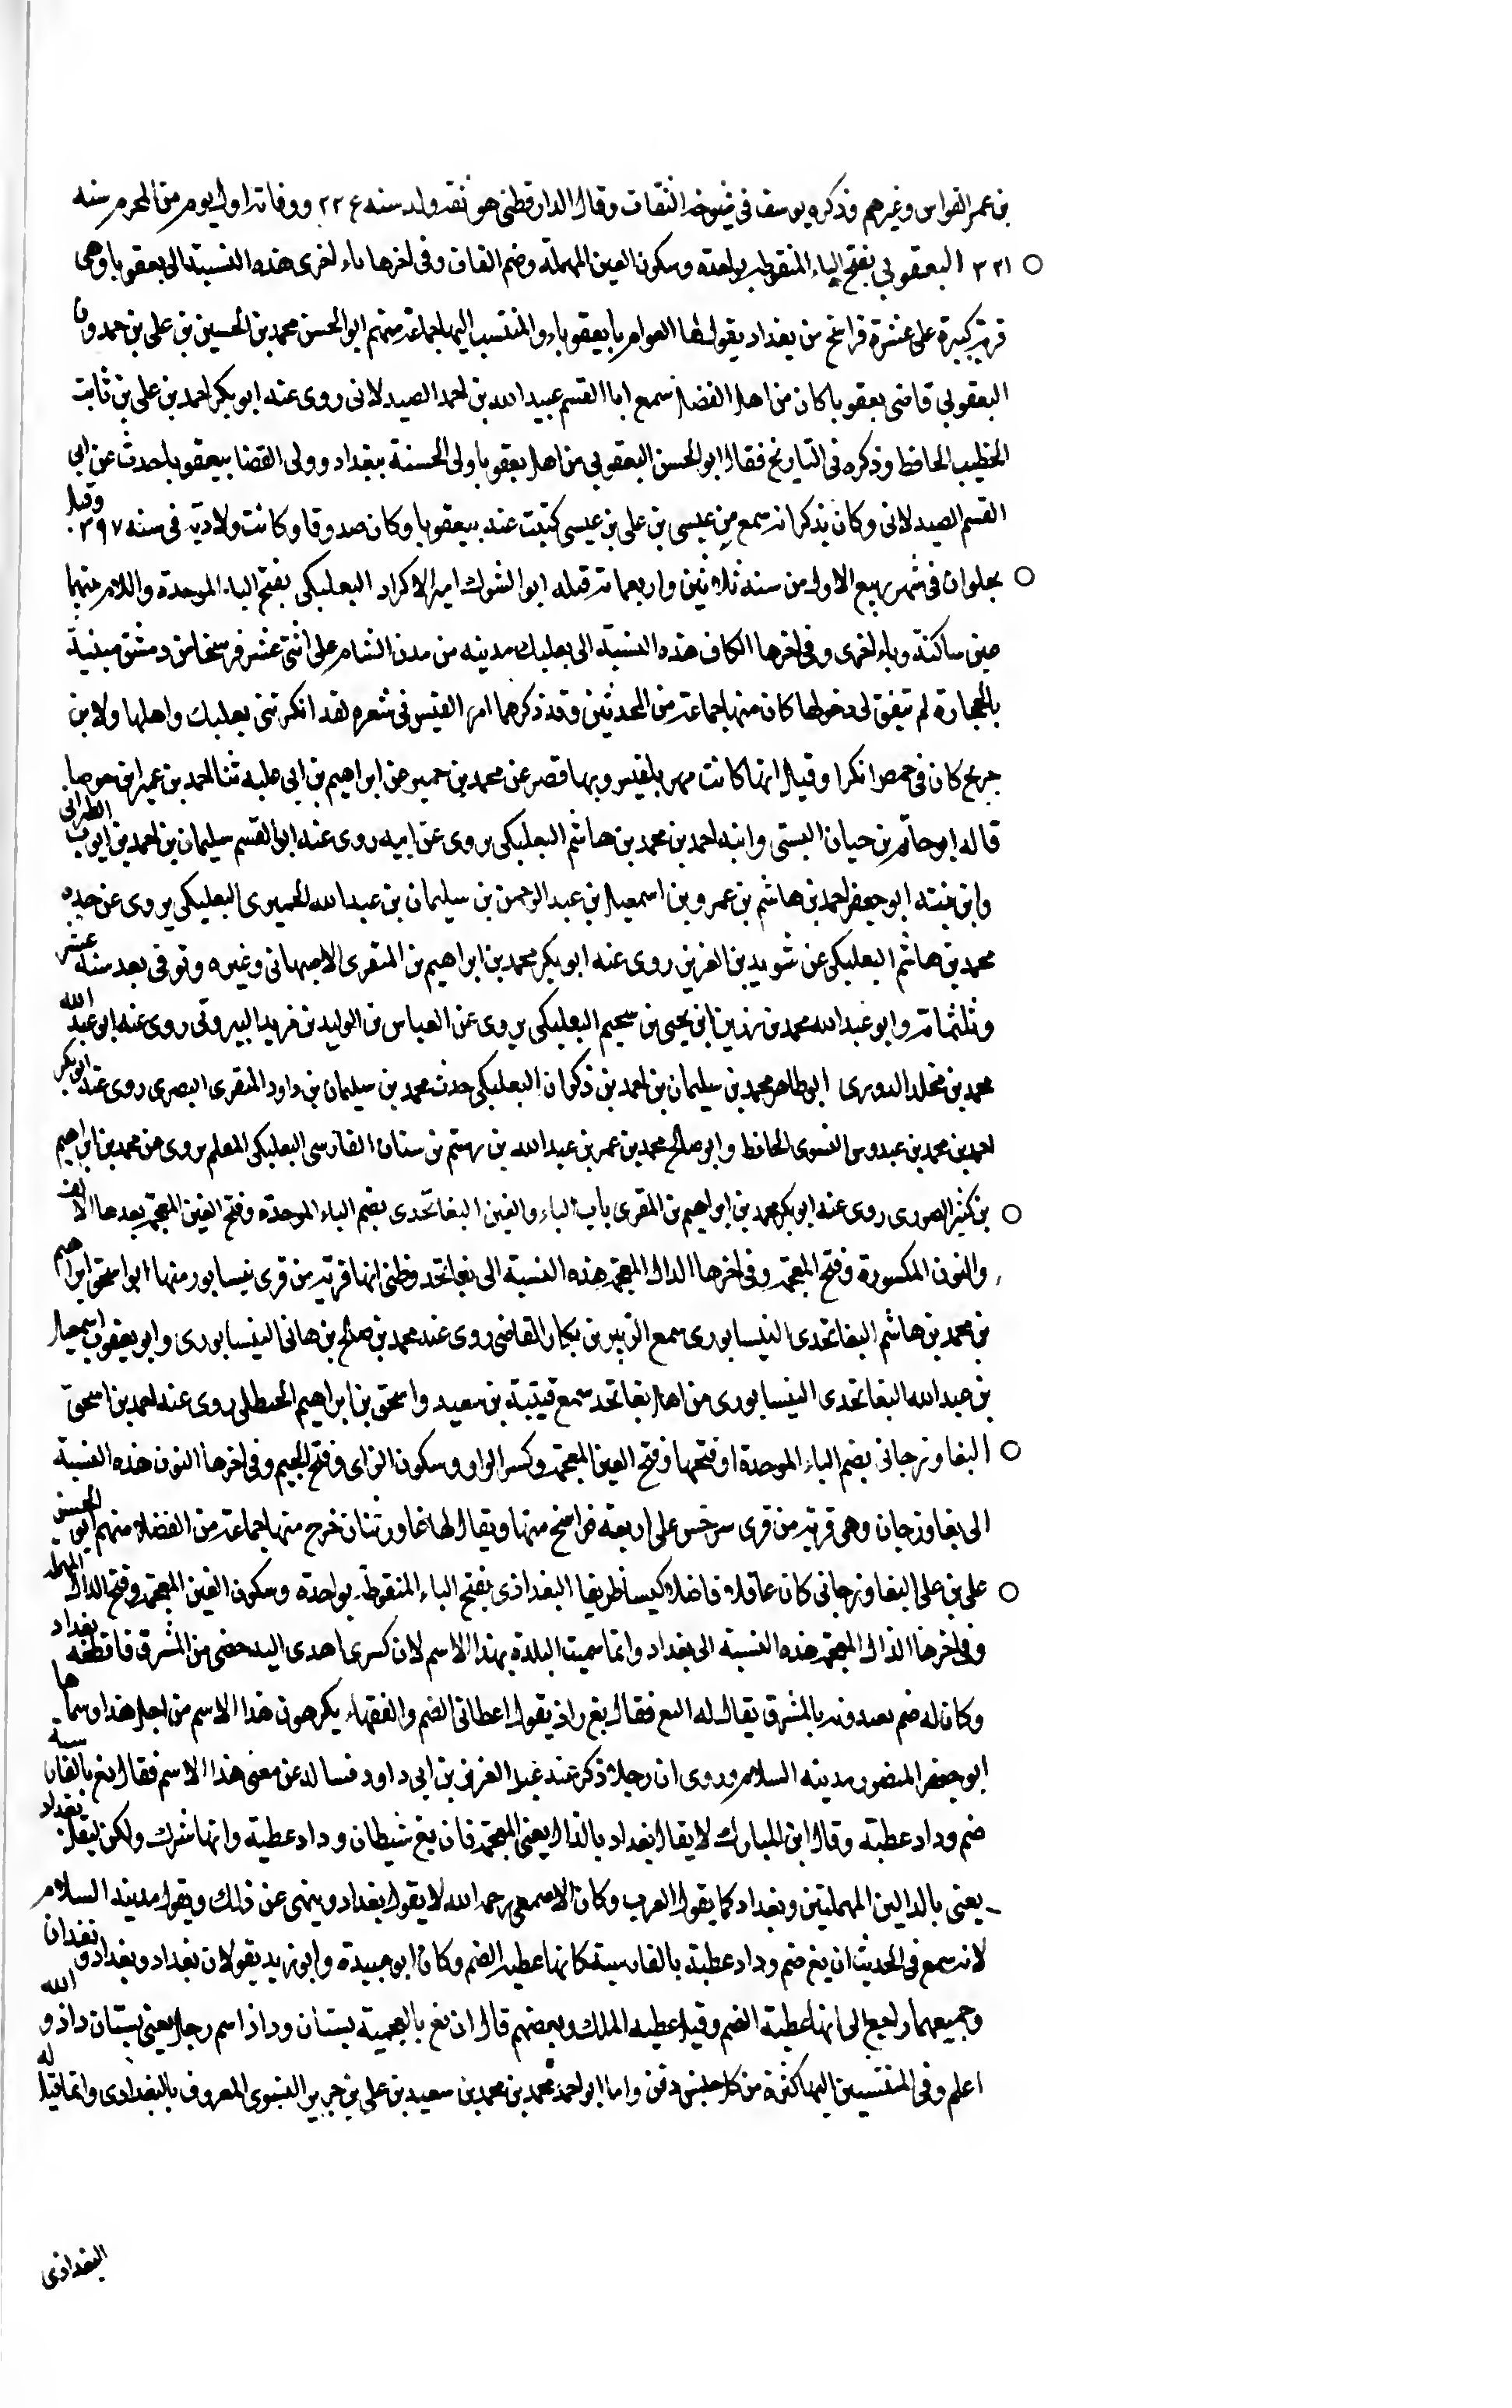 بن عمر القواس وغيرهم وذكره يوسف في شيوخه الثقات وقال الدارقطني هو ثقه ولد سنه ٢٢٤ ووفاته اول يوم من المحرم سنه
٣٢١ البعقوبي بفتح الباء المنقوطه بواحدة وسكون العين المهملة وضم القاف وفي اخرها باء اخرى هذه النسبة الى بعقوبا وهى
قرية كبيرة على عشرة فراسخ من بغداد يقول لها العوام باعقوباء والمنتسب اليها جماعة منهم ابو الحسن محمد بن الحسين بن على بن حمدون
البعقوبي قاضى بعقوبا كان من اهل الفضل سمع ابا القسم عبيد الله بن احمد الصيدلانى روى عنه ابو بكر احمد بن على بن ثابت
الخطيب الحافظ وذكره فى التاريخ فقال ابو الحسن البعقوبي من اهل بعقوبا ولى الحسبة ببغداد وولى القضا ببعقوبا حدث عن ابى
القسم الصيدلانى وكان يذكر انه سمع من عيسى بن على بن عيسى كتبت عنه ببعقوبا وكان صدوقا وكانت ولادته فى سنه ٣٩٧ وقتل
بحلوان فى شهر ربيع الاول من سنة ثلاثين واربعماية قتله ابو الشوك امير الاكراد البعلبكى بفتح الباء الموحدة واللام بينهما
عين ساكنة وباء اخرى وفى اخرها الكاف هذه النسبة الى بعلبك مدينه من مدن الشام على اثنى عشر فرسخا من دمشق مبنية
بالحجارة لم يتفق لى دخولها كان منها جماعة من المحدثين وقد ذكرها امرء القيس فى شعره لقد انكرتنى بعلبك واهلها ولابن
جريج كان فى حمص انكرا وقيل انها كانت مهر بلقيس وبها قصر عن محمد بن حمير عن ابراهيم بن ابى عبله ثنا احمد بن عمير ابن جوصا
قاله ابو حاتم بن حبان البستى وابنه احمد بن محمد بن هاشم البعلبكى يروى عن ابيه روى عنه ابو القسم سليمان بن احمد بن ايوب الطبرانى
وابن بنته ابو جعفر احمد بن هاشم بن عمرو بن اسمعيل بن عبد الرحمن بن سليمان بن عبد الله الحميرى البعلبكى يروى عن جده
محمد بن هاشم البعلبكى عن سويد بن العزيز روى عنه ابو بكر محمد بن ابراهيم بن المقرى الاصبهانى وغيره وتوفى بعد سنة عشر
وثلثماية وابو عبد الله محمد بن رزين ابن يحيى بن سحيم البعلبكى يروى عن العباس بن الوليد بن مزيد البيروتى روى عنه ابو عبد الله
محمد بن مخلد الدورى ابو طاهر محمد بن سليمان بن احمد بن ذكوان البعلبكى حدث محمد بن سليمان بن داود المنقرى البصرى روى عنه ابو بكر
احمد بن محمد بن عبدوس النسوى الحافظ وابو صالح محمد بن عمر بن عبد الله بن رستم بن سنان الفارسى البعلبكى المعلم يروى عن محمد بن ابراهيم
بن كثير الصورى روى عنه ابو بكر محمد بن ابراهيم بن المقرى باب الباء والغين البغانخذى بضم الباء الموحدة وفتح الغين المعجمة بعدها الالف
والنون المكسورة وفتح المعجمة وفى اخرها الدال المعجمة هذه النسبة الى بغانخذ وظنى انها قرية من قرى نيسابور منها ابو اسحق ابراهيم
بن محمد بن هاشم البغانخذى النيسابورى سمع الزبير بن بكار القاضى روى عنه محمد بن صالح بن هانى النيسابورى وابو يعقوب اسمعيل
بن عبد الله البغانخذى النيسابورى من اهل بغانخذ سمع قتيبة بن سعيد واسحق بن ابراهيم الحنظلى روى عنه احمد بن اسحق
البغاوزجانى بضم الباء الموحدة او فتحها وفتح الغين المعجمة وكسر الواو وسكون الزاى وفتح الجيم وفى اخرها النون هذه النسبة
الى بغاوزجان وهى قرية من قرى سرخس على اربعة فراسخ منها ويقال لها غاوزثنان خرج منها جماعة من الفضلاء منهم ابو الحسن
على بن على البغاوزجانى كان عاقلا فاضلا كيسا ظريفا البغداذى بفتح الباء المنقوطة بواحدة وسكون الغين المعجمة وفتح الدال المهملة
وفى اخرها الذال المعجمة هذه النسبة الى بغداد وانما سميت البلدة بهذا الاسم لان كسرى اهدى اليه خصى من المشرق فاقطعه بغداد
وكان له صنم يعبدونه بالمشرق يقال له البغ فقال بغ داذ يقول اعطانى الصنم والفقهاء يكرهون هذا الاسم من اجل هذا وسماها
ابو جعفر المنصور مدينه السلام وروى ان رجلا ذكر عند عبد العزيز بن ابى داود فساله عن معنى هذا الاسم فقال بغ بالفارسية
صنم وداد عطية وقال ابن المبارك لا يقال بغداد بالذال يعنى المعجمة فان بغ شيطان وداد عطية وانها شرك ولكن ليقل بغداد
يعنى بالدالين المهملتين وبغداد كما يقول العرب وكان الاصمعى رحمه الله لا يقول بغداد وينهى عن ذلك ويقول مدينه السلام
لانه سمع فى الحديث ان بغ صنم وداد عطية بالفارسية كانها عطية الصنم وكان ابو عبيدة وابو زيد يقولان بغداد وبغداذ وبغدان
وجميعها راجع الى انها عطية الصنم وقيل عطيه الملك وبعضهم قال ان بغ بالعجمية بستان وداذ اسم رجل يعنى بستان داذ والله
اعلم وفى المنتسبين اليها كثرة من كل جنس وفن واما ابو احمد محمد بن محمد بن سعيد بن على بن جرير النسوى المعروف بالبغدادى وانما قيل له
البغدادى